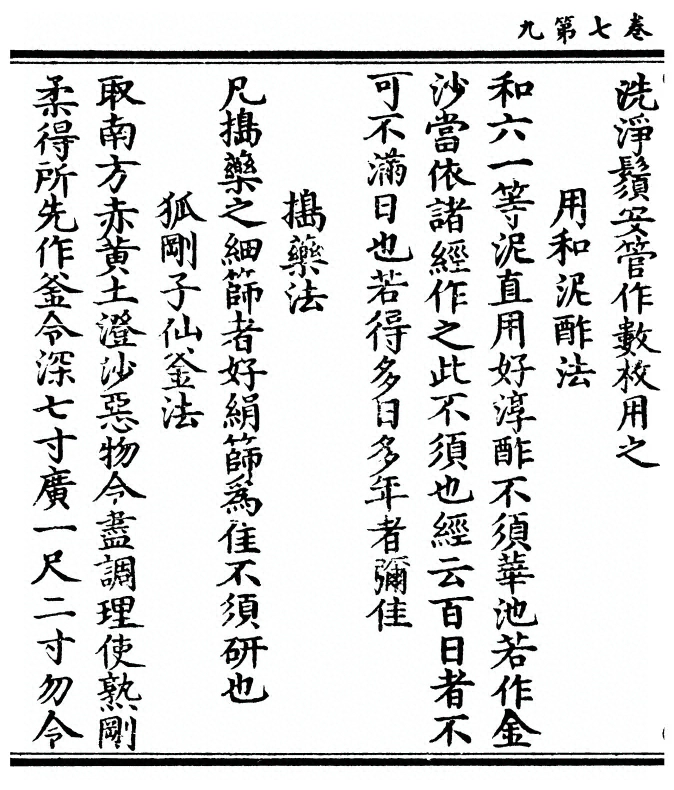 卷七第九
洗淨鬚安管作數枚用之
用和泥酢法
和六一等泥直用好淳酢不須華池若作金
沙當依諸經作之此不須也經云百日者不
可不滿日也若得多日多年者彌佳
搗藥法
凡搗藥之細篩者好絹篩為佳不須研也
狐剛子仙釜法
取南方赤黄土澄沙惡物令盡調理使熟剛
柔得所先作釜令深七寸廣一尺二寸勿令